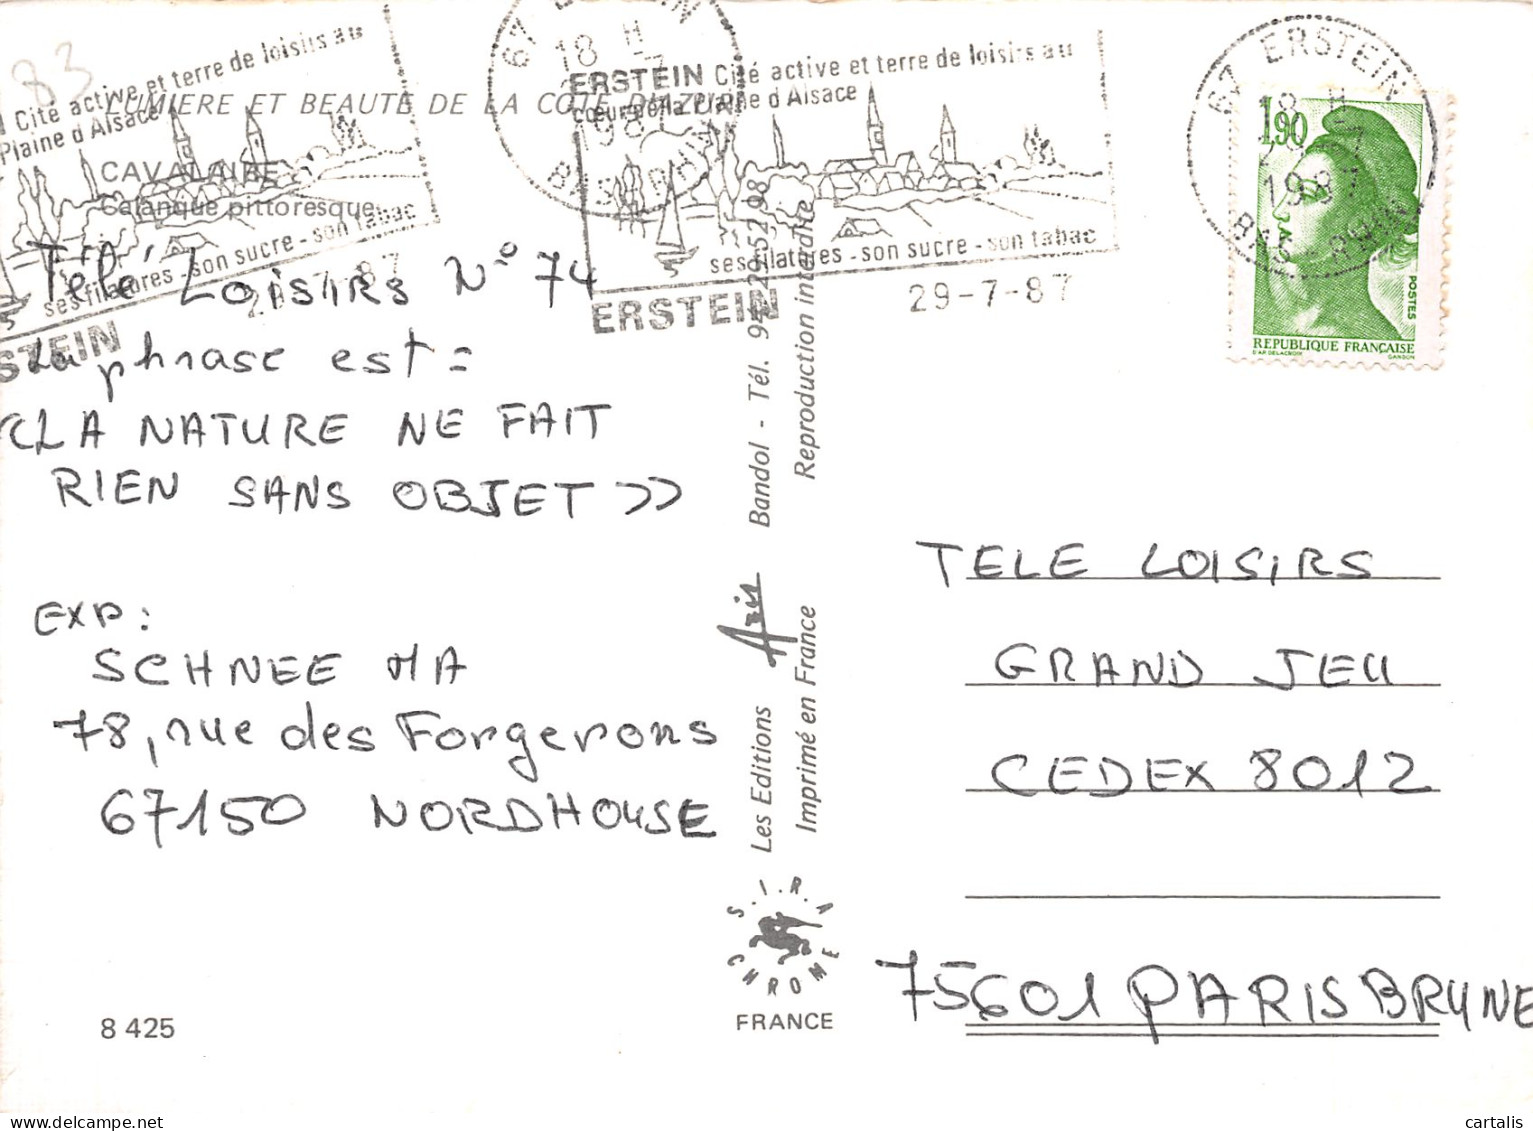 83
Cité active et terre de loisirs au
Plaine d'Alsace
ses filatures - son sucre - son tabac
67 ERSTEIN
18 H
BAS-RHIN
ERSTEIN Cité active et terre de loisirs au
cœur de la Plaine d'Alsace
ses filatures - son sucre - son tabac
ERSTEIN
29-7-87
67 ERSTEIN
18 H
1987
BAS-RHIN
1,90
POSTES
REPUBLIQUE FRANÇAISE
D'AP. DELACROIX GANDON
LUMIERE ET BEAUTE DE LA COTE D'AZUR
CAVALAIRE
Calanque pittoresque
Télé Loisirs N° 74
La phrase est =
<< LA NATURE NE FAIT
RIEN SANS OBJET >>
EXP:
SCHNEE MA
78, rue des Forgerons
67150 NORDHOUSE
8 425
Les Editions Aris Bandol - Tél. 94 29 52 98
Imprimé en France Reproduction interdite
S.I.R.A
CHROME
FRANCE
TELE LOISIRS
GRAND JEU
CEDEX 8012
75601 PARIS BRUNE
cartalis